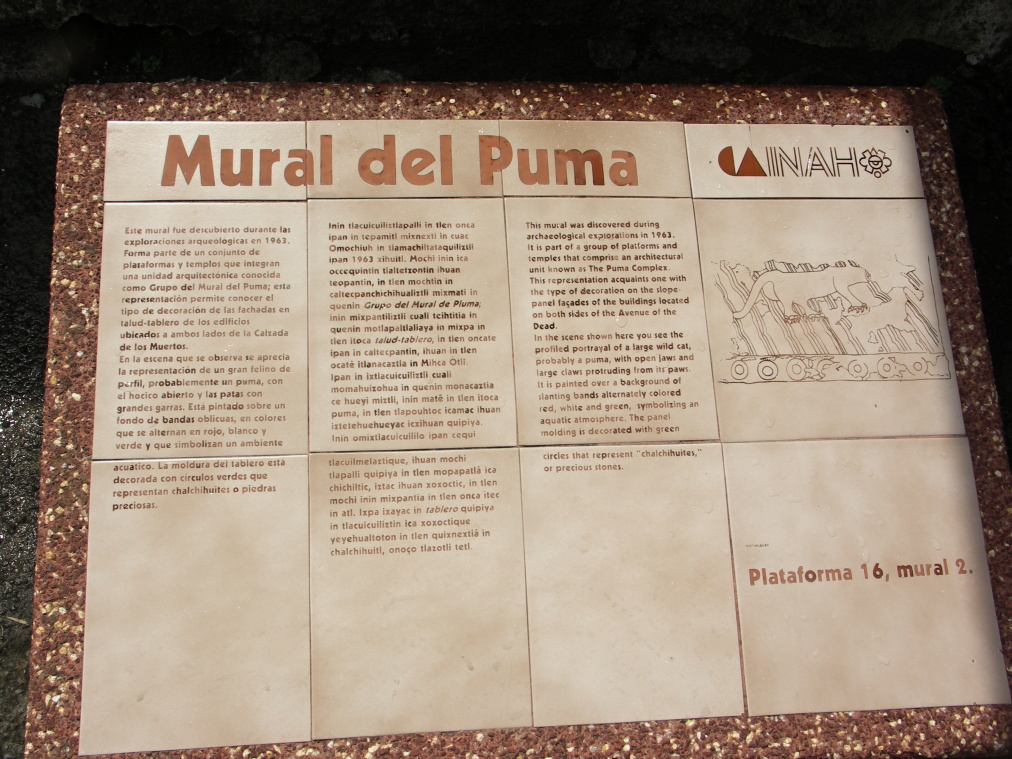 Mural del Puma
INAH
Este mural fue descubierto durante las
exploraciones arqueológicas en 1963.
Forma parte de un conjunto de
plataformas y templos que integran
una unidad arquitectónica conocida
como Grupo del Mural del Puma; esta
representación permite conocer el
tipo de decoración de las fachadas en
talud-tablero de los edificios
ubicados a ambos lados de la Calzada
de los Muertos.
En la escena que se observa se aprecia
la representación de un gran felino de
perfil, probablemente un puma, con
el hocico abierto y las patas con
grandes garras. Está pintado sobre un
fondo de bandas oblicuas, en colores
que se alternan en rojo, blanco y
verde y que simbolizan un ambiente
acuático. La moldura del tablero está
decorada con círculos verdes que
representan chalchihuites o piedras
preciosas.
Inin tlacuicuiliztlapalli in tlen onca
ipan in tepamitl mixnexti in cuac
Omochiuh in tlamachiltataquiliztli
ipan 1963 xihuitl. Mochi inin ica
occequintin tlaltetzontin ihuan
teopantin, in tlen mochtin in
caltecpanchichihualiztli mixmati in
quenin Grupo del Mural de Pluma;
inin mixpantiliztli cuali tcihtitia in
quenin motlapaltlaliaya in mixpa in
tlen itoca talud-tablero, in tlen oncate
ipan in caltecpantin, ihuan in tlen
ocatê itlanacaztia in Mihca Otli.
Ipan in ixtlacuicuiliztli cuali
momahuizohua in quenin monacaztia
ce hueyi miztli, inin matê in tlen itoca
puma, in tlen tlapouhtoc icamac ihuan
iztetehuehueyac icxihuan quipiya.
Inin omixtlacuicuililo ipan cequi
tlacuilmelaztique, ihuan mochi
tlapalli quipiya in tlen mopapatlâ ica
chichiltic, iztac ihuan xoxoctic, in tlen
mochi inin mixpantia in tlen onca itec
in atl. Ixpa ixayac in tablero quipiya
in tlacuicuiliztin ica xoxoctique
yeyehualtoton in tlen quixnextiâ in
chalchihuitl, onoço tlazotli tetl.
This mural was discovered during
archaeological explorations in 1963.
It is part of a group of platforms and
temples that comprise an architectural
unit known as The Puma Complex.
This representation acquaints one with
the type of decoration on the slope-
panel façades of the buildings located
on both sides of the Avenue of the
Dead.
In the scene shown here you see the
profiled portrayal of a large wild cat,
probably a puma, with open jaws and
large claws protruding from its paws.
It is painted over a background of
slanting bands alternately colored
red, white and green, symbolizing an
aquatic atmosphere. The panel
molding is decorated with green
circles that represent "chalchihuites,"
or precious stones.
Plataforma 16, mural 2.